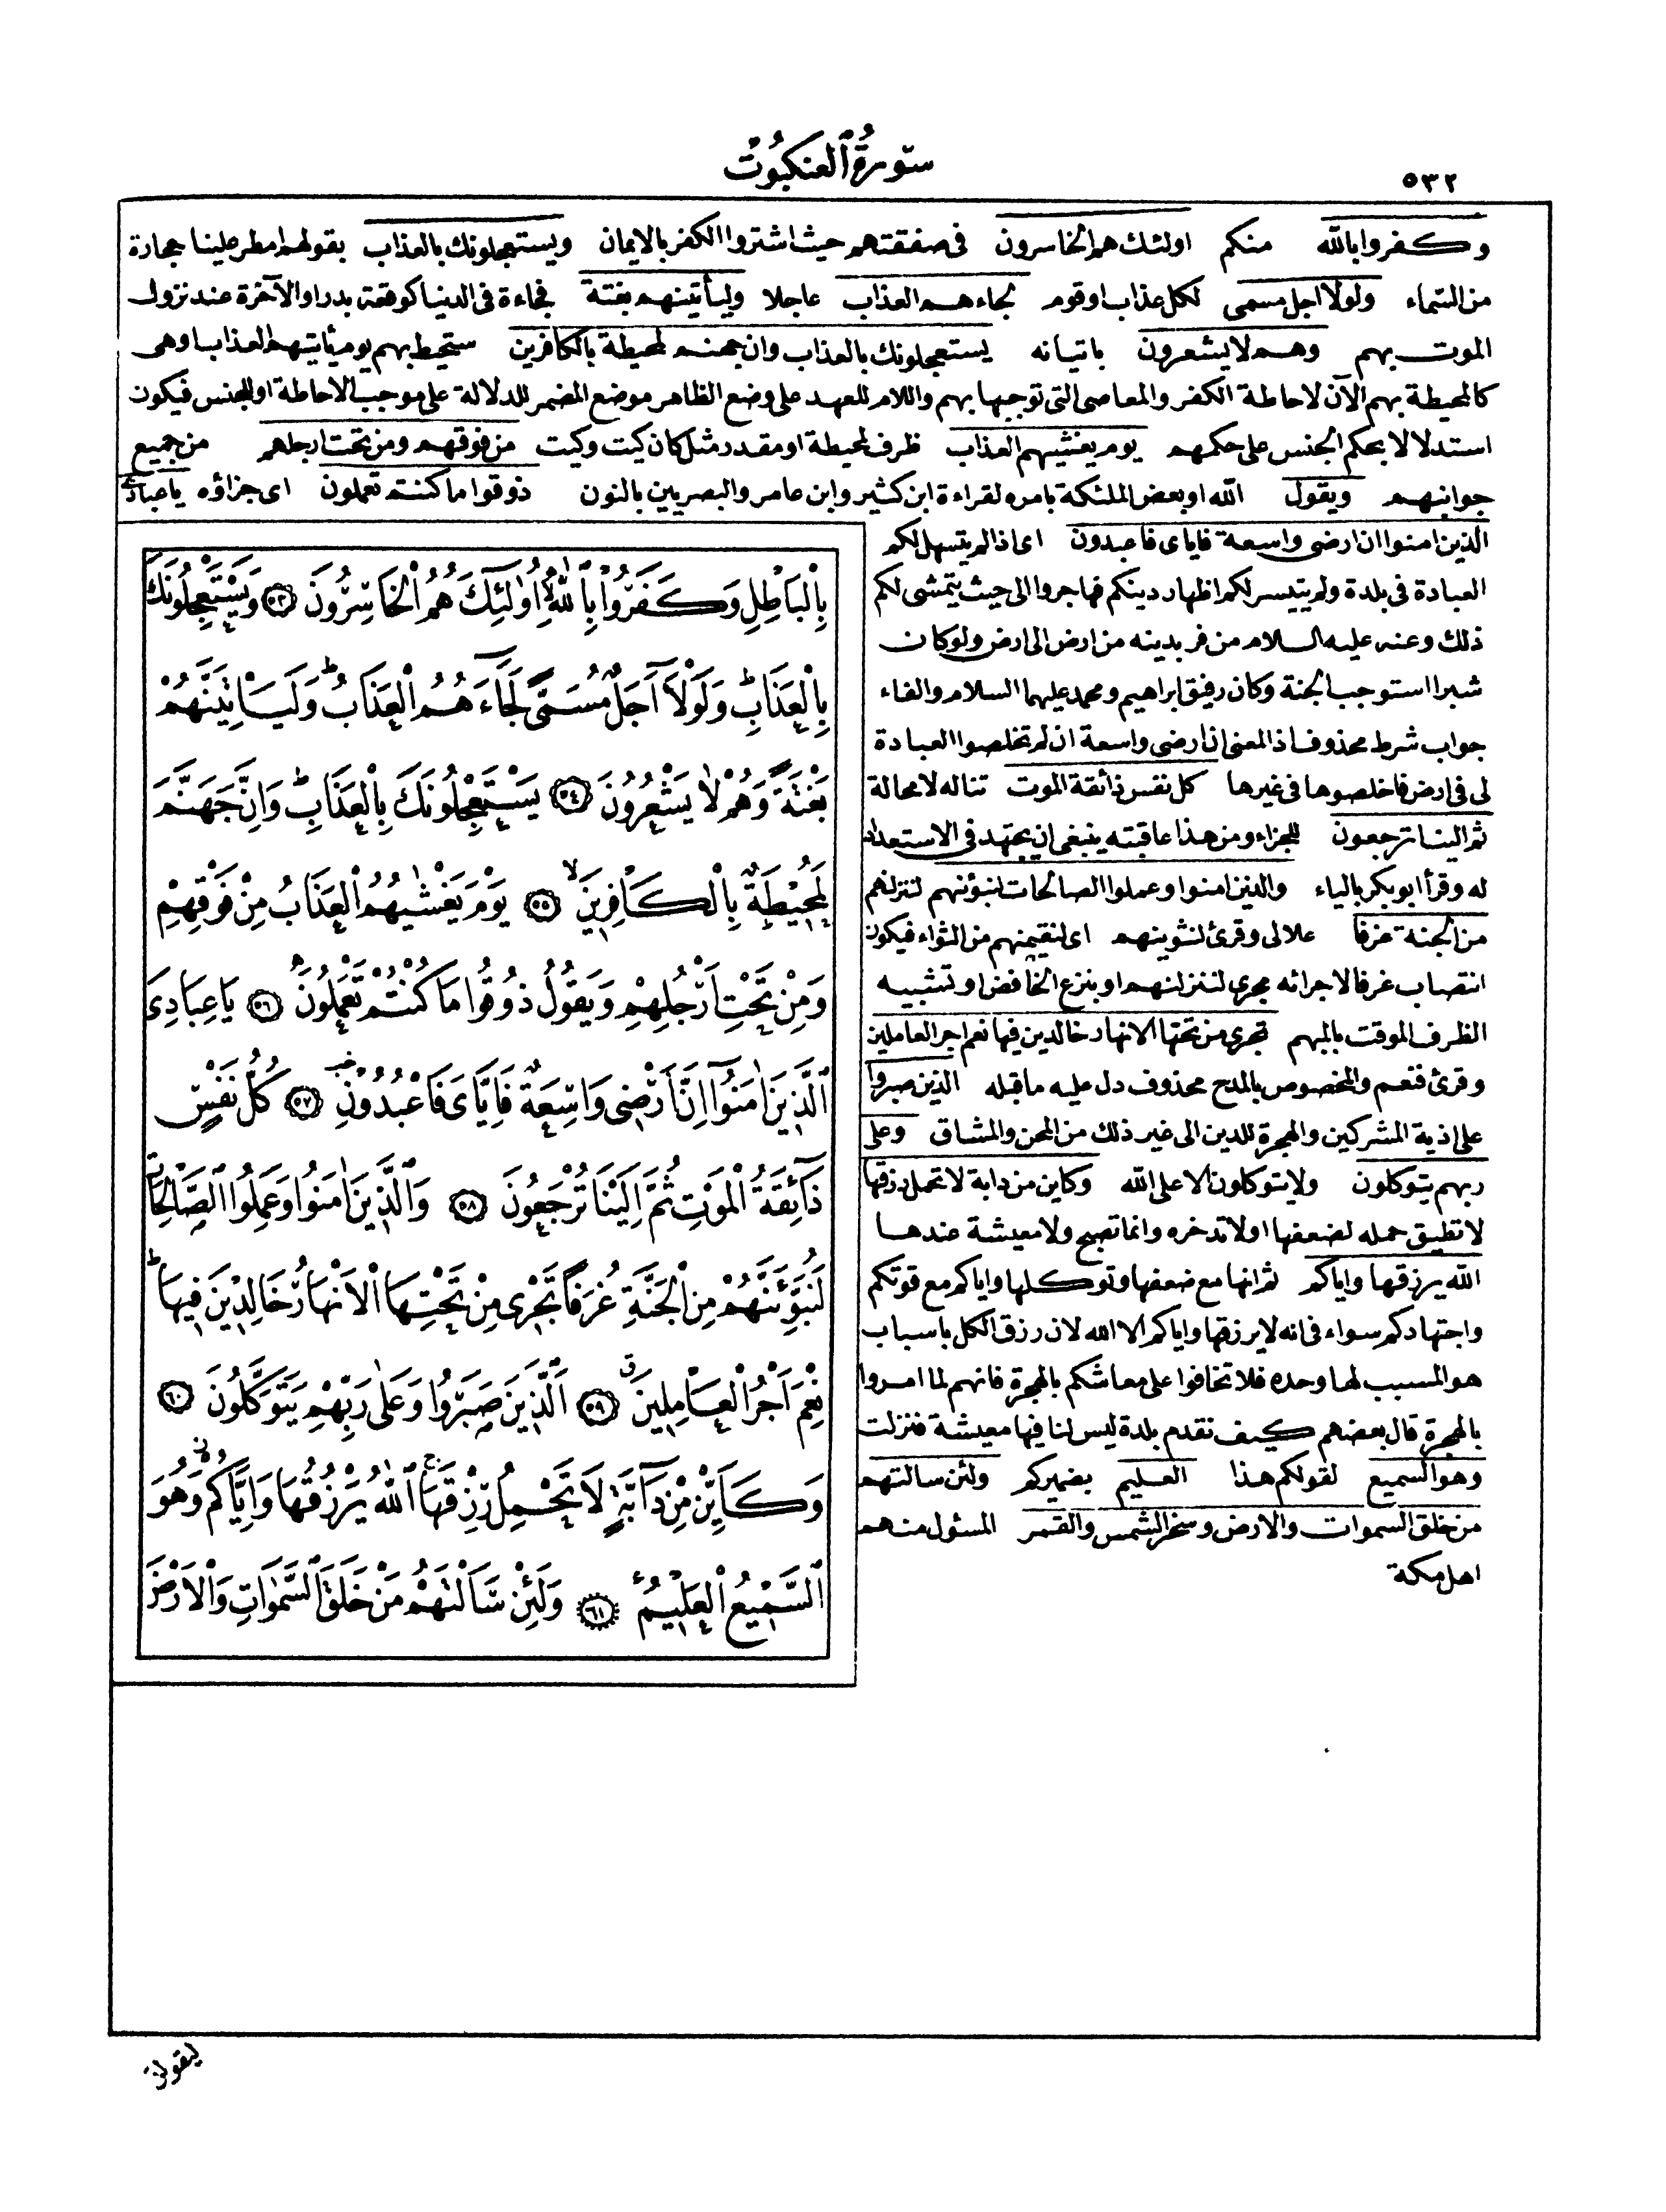 ٥٣٢
سورة العنكبوت
وكفروا بالله منكم اولئك هم الخاسرون فى صفقتهم حيث اشتروا الكفر بالايمان ويستعجلونك بالعذاب بقولهم امطر علينا حجارة
من السماء ولولا اجل مسمى لكل عذاب او قوم لجاءهم العذاب عاجلا وليأتينهم بغتة فجاءة فى الدنيا كوقعة بدر او الآخرة عند نزول
الموت بهم وهم لا يشعرون باتيانه يستعجلونك بالعذاب وان جهنم لمحيطة بالكافرين ستحيط بهم يوم يأتيهم العذاب او هى
كالمحيطة بهم الآن لاحاطة الكفر والمعاصى التى توجبها بهم واللام للعهد على وضع الظاهر موضع المضمر للدلالة على موجب الاحاطة او للجنس فيكون
استدلالا بحكم الجنس على حكمهم يوم يغشيهم العذاب ظرف لمحيطة او مقدر مثل كان كيت وكيت من فوقهم ومن تحت ارجلهم من جميع
جوانبهم ويقول الله او بعض الملئكة بامره لقراءة ابن كثير وابن عامر والبصريين بالنون ذوقوا ما كنتم تعملون اى جزاؤه يا عبادى
الذين امنوا ان ارضى واسعة فاياى فاعبدون اى اذا لم يتسهل لكم
العبادة فى بلدة ولم يتيسر لكم اظهار دينكم فهاجروا الى حيث يتمشى لكم
ذلك وعنه عليه السلام من فر بدينه من ارض الى ارض ولو كان
شبرا استوجب الجنة وكان رفيق ابراهيم ومحمد عليهما السلام والفاء
جواب شرط محذوف اذ المعنى ان ارضى واسعة ان لم تخلصوا العبادة
لى فى ارض فاخلصوها فى غيرها كل نفس ذائقة الموت تناله لا محالة
ثم الينا ترجعون للجزاء ومن هذا عاقبته ينبغى ان يجتهد فى الاستعداد
له وقرأ ابو بكر بالياء والذين امنوا وعملوا الصالحات لنبوئنهم لننزلنهم
من الجنة غرفا علالى وقرئ لنثوينهم اى لنقيمنهم من الثواء فيكون
انتصاب غرفا لاجرائه مجرى لننزلنهم او بنزع الخافض او تشبيه
الظرف الموقت بالمبهم تجرى من تحتها الانهار خالدين فيها نعم اجر العاملين
وقرئ فنعم والمخصوص بالمدح محذوف دل عليه ما قبله الذين صبروا
على اذية المشركين والهجرة للدين الى غير ذلك من المحن والمشاق وعلى
ربهم يتوكلون ولا يتوكلون الا على الله وكاين من دابة لا تحمل رزقها
لا تطيق حمله لضعفها او لا تدخره وانما تصبح ولا معيشة عندها
الله يرزقها واياكم ثم انها مع ضعفها وتوكلها واياكم مع قوتكم
واجتهادكم سواء فى انه لا يرزقها واياكم الا الله لان رزق الكل باسباب
هو المسبب لها وحده فلا تخافوا على معاشكم بالهجرة فانهم لما امروا
بالهجرة قال بعضهم كيف نقدم بلدة ليس لنا فيها معيشة فنزلت
وهو السميع لقولكم هذا العليم بضميركم ولئن سالتهم
من خلق السموات والارض وسخر الشمس والقمر المسئول منهم
اهل مكة
بِالْبَاطِلِ وَكَفَرُوا بِاللّٰهِ اُولٰئِكَ هُمُ الْخَاسِرُونَ ٥٣ وَيَسْتَعْجِلُونَكَ
بِالْعَذَابِ وَلَوْلَا اَجَلٌ مُسَمًّى لَجَاءَهُمُ الْعَذَابُ وَلَيَاْتِيَنَّهُمْ
بَغْتَةً وَهُمْ لَا يَشْعُرُونَ ٥٤ يَسْتَعْجِلُونَكَ بِالْعَذَابِ وَاِنَّ جَهَنَّمَ
لَمُحِيطَةٌ بِالْكَافِرِينَ ٥٥ يَوْمَ يَغْشٰيهُمُ الْعَذَابُ مِنْ فَوْقِهِمْ
وَمِنْ تَحْتِ اَرْجُلِهِمْ وَيَقُولُ ذُوقُوا مَا كُنْتُمْ تَعْمَلُونَ ٥٦ يَا عِبَادِىَ
الَّذِينَ اٰمَنُوا اِنَّ اَرْضِى وَاسِعَةٌ فَاِيَّاىَ فَاعْبُدُونِ ٥٧ كُلُّ نَفْسٍ
ذَائِقَةُ الْمَوْتِ ثُمَّ اِلَيْنَا تُرْجَعُونَ ٥٨ وَالَّذِينَ اٰمَنُوا وَعَمِلُوا الصَّالِحَاتِ
لَنُبَوِّئَنَّهُمْ مِنَ الْجَنَّةِ غُرَفًا تَجْرِى مِنْ تَحْتِهَا الْاَنْهَارُ خَالِدِينَ فِيهَا
نِعْمَ اَجْرُ الْعَامِلِينَ ٥٩ اَلَّذِينَ صَبَرُوا وَعَلٰى رَبِّهِمْ يَتَوَكَّلُونَ ٦٠
وَكَاَيِّنْ مِنْ دَابَّةٍ لَا تَحْمِلُ رِزْقَهَا اَللّٰهُ يَرْزُقُهَا وَاِيَّاكُمْ وَهُوَ
السَّمِيعُ الْعَلِيمُ ٦١ وَلَئِنْ سَاَلْتَهُمْ مَنْ خَلَقَ السَّمٰوَاتِ وَالْاَرْضَ
ليقولن